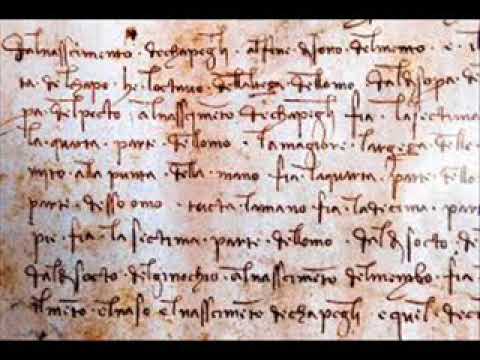 dal nasscimento · de chapegli · al fine · di socto · del mento · e · il
ta · del chapo · he · loctavo · dellalteza · dellomo · dal di sopa · de
pa · del pecto · al nasscimeto de chapegli · fia · la sectima
la quarta · parte · dellomo · la magiore · largeza · delle
mito · alla punta · della · mano · fia · la quarta · parte · dello
parte · desso omo · tucta la mano · fia · la decima · part
pie · fia · la sectima · parte · dellomo · dal di socto · de
dal di socto · del ginochio · al nasscimeto · del membro · fia
il meto · el naso · el nasscimeto de chapegli e quel · de